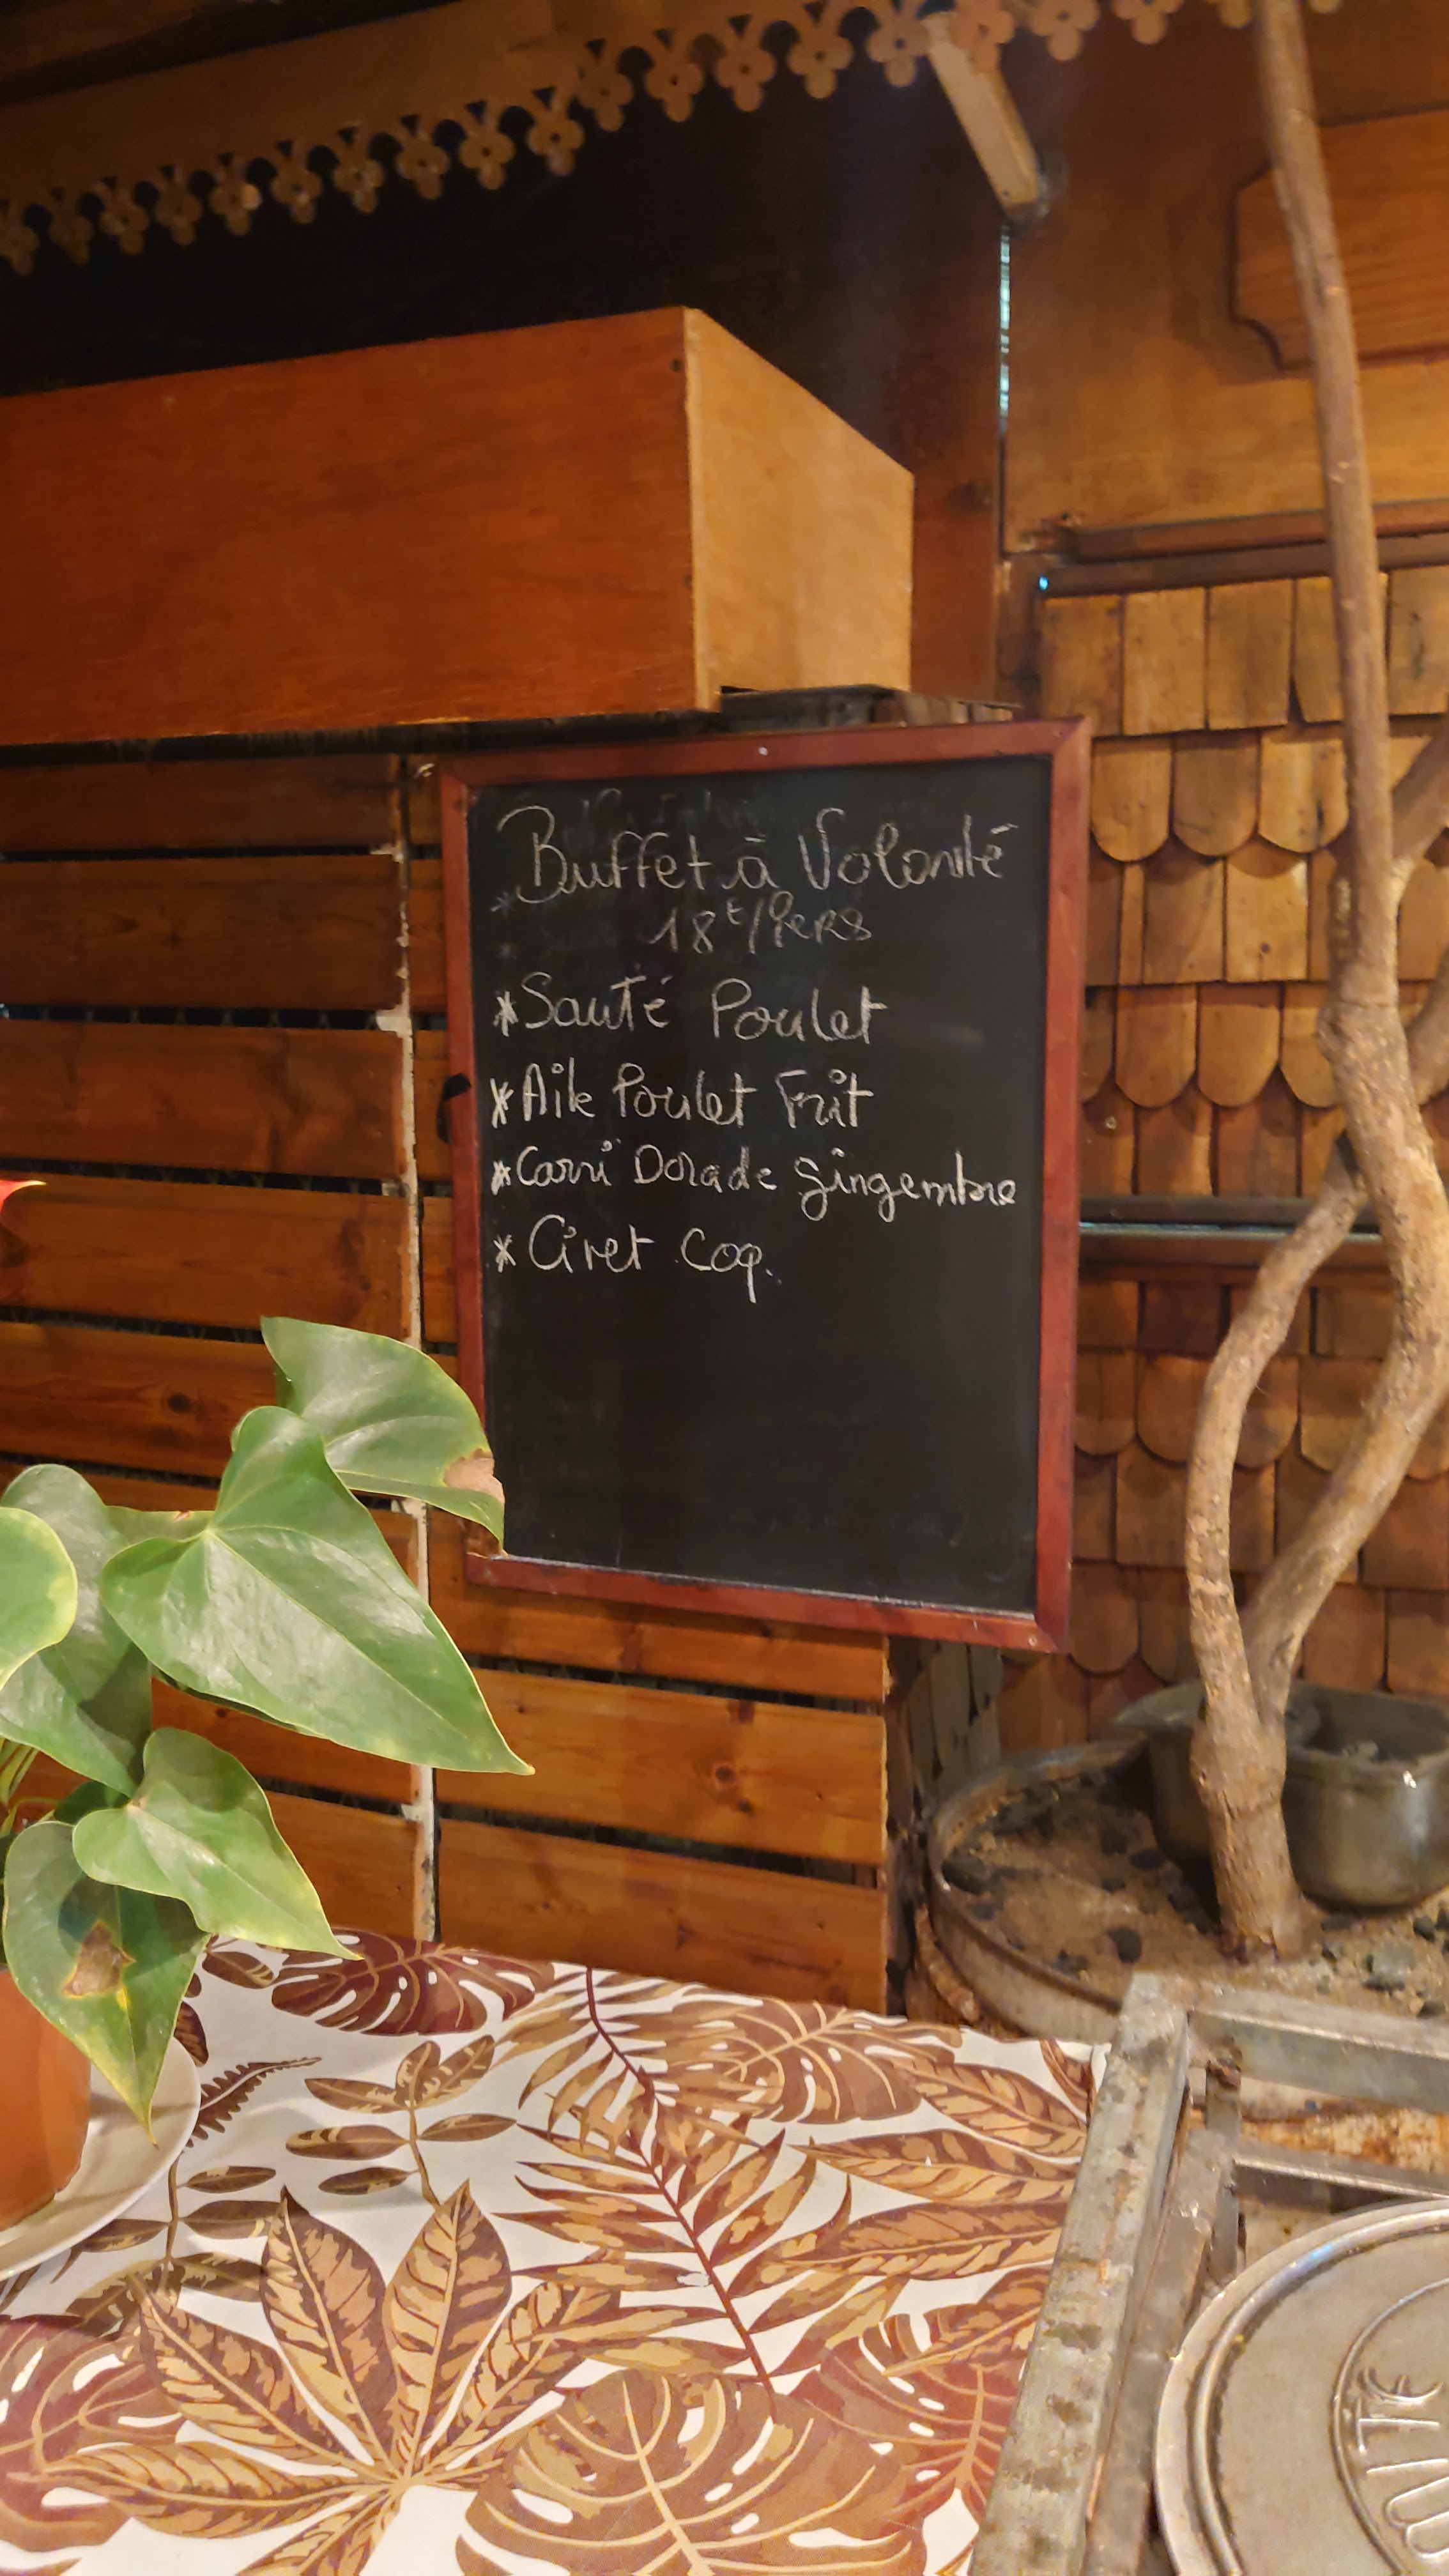 Buffet à Volonté
18€/Pers
*Sauté Poulet
*Aile Poulet Frit
*Carri Dorade gingembre
*Civet Coq.